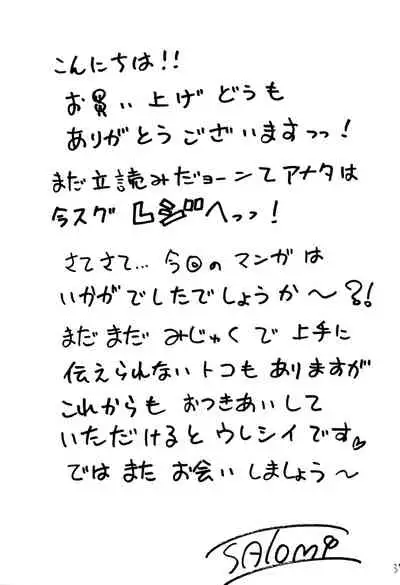 こんにちは!!
お買い上げどうも
ありがとうございますっっ!
まだ立読みだョーンてアナタは
今スグ レジへっっ!
さてさて… 今回の マンガは
いかがでしたでしょうか〜?!
まだまだ みじゅくで 上手に
伝えられないトコもありますが
これからも おつきあいして
いただけると ウレシイです♡
では また お会いしましょう〜
SALOMƎ